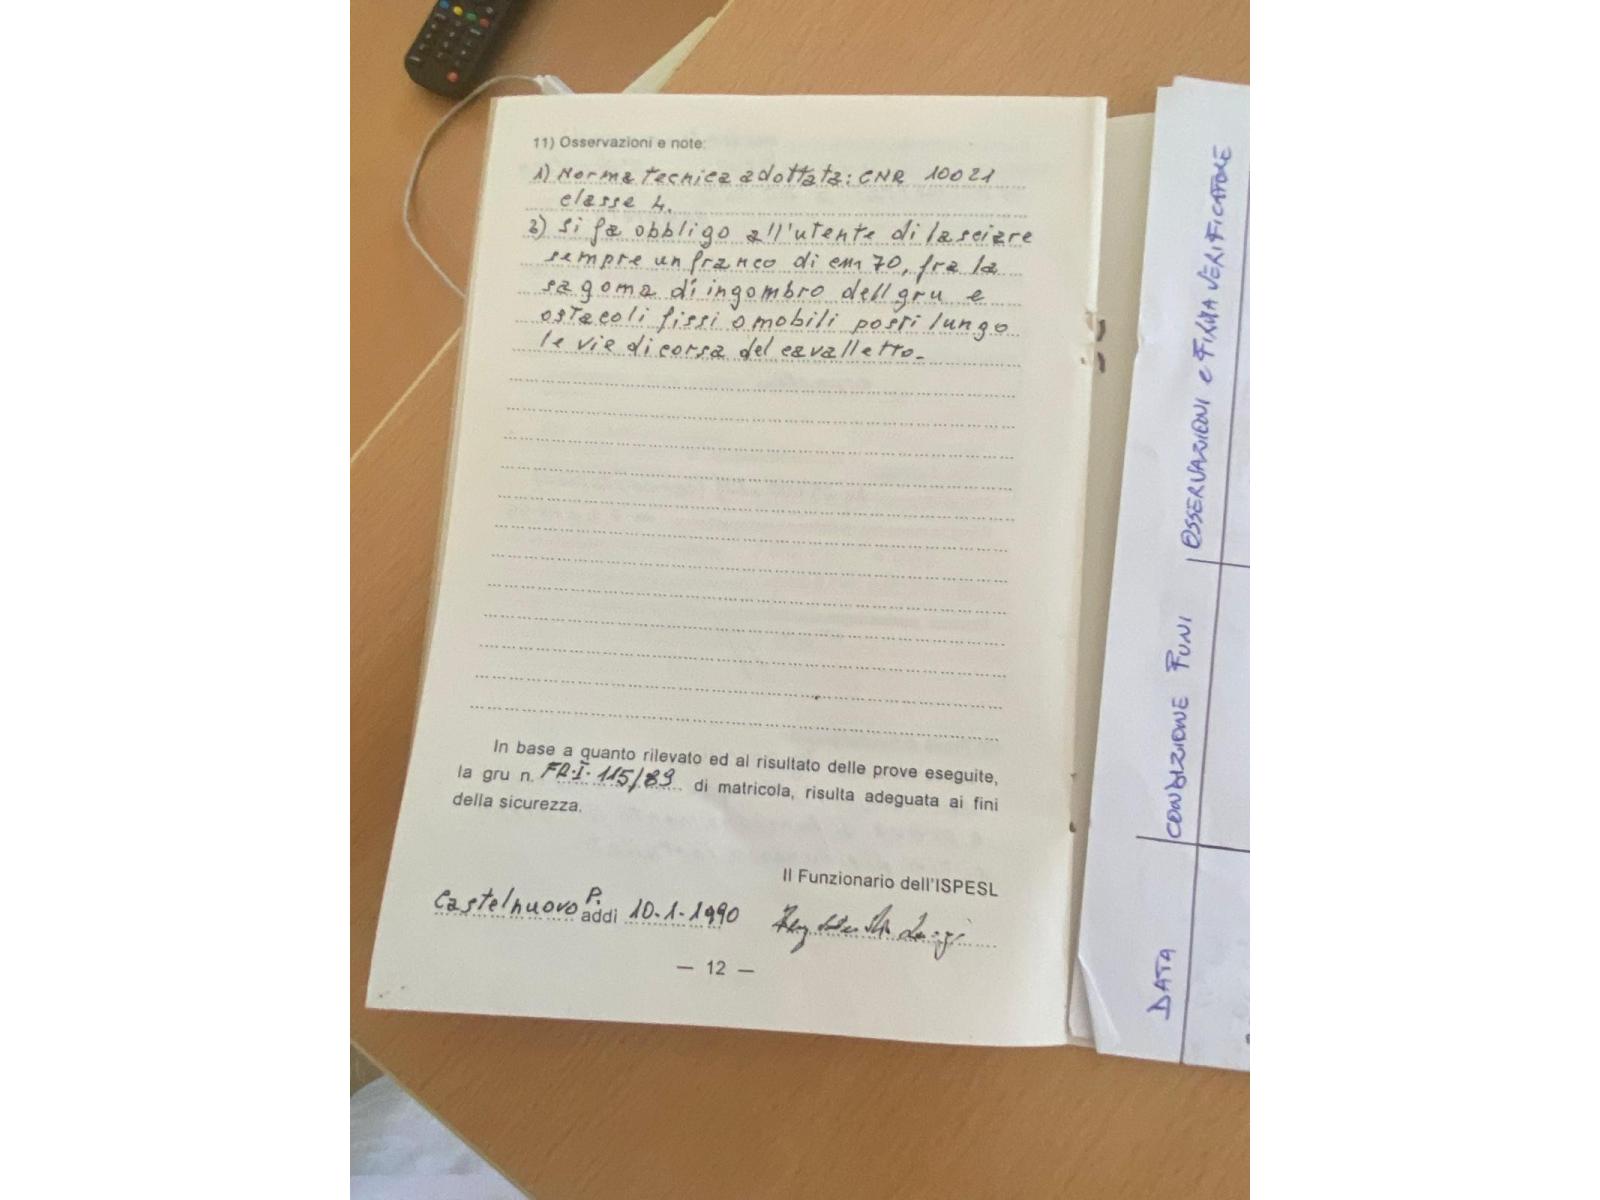 11) Osservazioni e note:
1) Norma tecnica adottata: CNR 10021
classe 4.
2) si fa obbligo all'utente di lasciare
sempre un franco di cm 70, fra la
sagoma di ingombro dell gru e
ostacoli fissi o mobili posti lungo
le vie di corsa del cavalletto.
In base a quanto rilevato ed al risultato delle prove eseguite,
la gru n. FR.I. 115/89 di matricola, risulta adeguata ai fini
della sicurezza.
Il Funzionario dell'ISPESL
Castelnuovo P. addì 10.1.1990
— 12 —
DATA
CONDIZIONE FUNI
OSSERVAZIONI e FIRMA VERIFICATORE